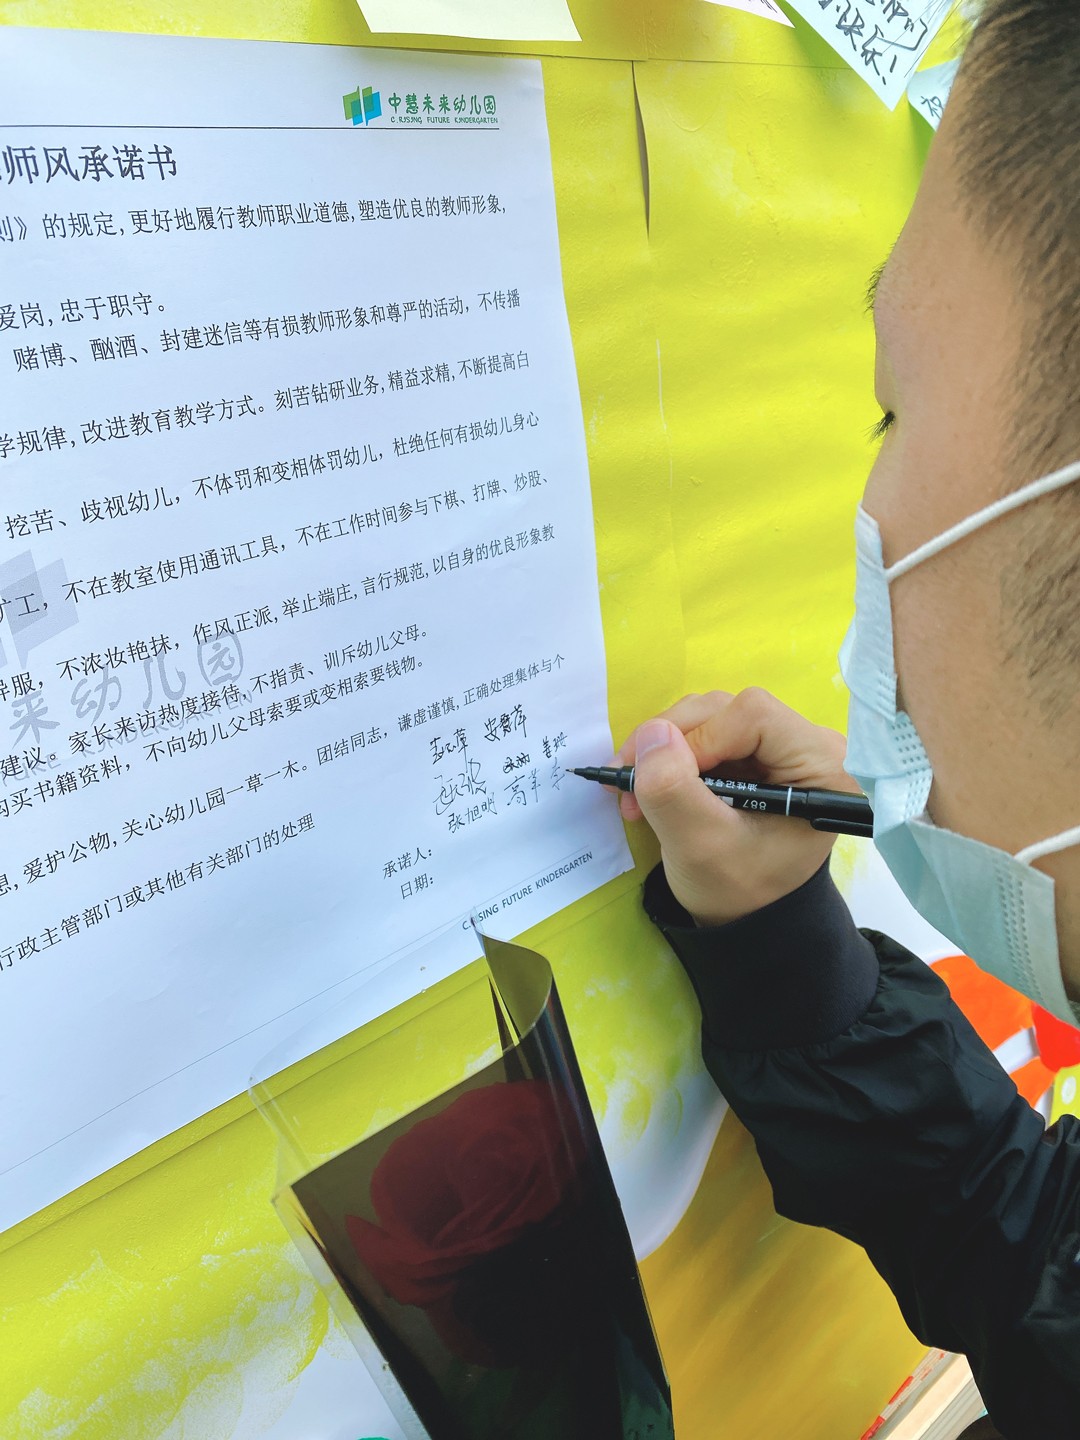 快乐!
中慧未来幼儿园
C.RISING FUTURE KINDERGARTEN
师风承诺书
则》的规定,更好地履行教师职业道德,塑造优良的教师形象,
爱岗,忠于职守。
赌博、酗酒、封建迷信等有损教师形象和尊严的活动,不传播
学规律,改进教育教学方式。刻苦钻研业务,精益求精,不断提高自
挖苦、歧视幼儿,不体罚和变相体罚幼儿,杜绝任何有损幼儿身心
旷工,不在教室使用通讯工具,不在工作时间参与下棋、打牌、炒股、
异服,不浓妆艳抹,作风正派,举止端庄,言行规范,以自身的优良形象教
建议。家长来访热度接待,不指责、训斥幼儿父母。
购买书籍资料,不向幼儿父母索要或变相索要钱物。
想,爱护公物,关心幼儿园一草一木。团结同志,谦虚谨慎,正确处理集体与个
行政主管部门或其他有关部门的处理
来幼儿园
张旭明
承诺人:
日期:
C.RISING FUTURE KINDERGARTEN
油性记号笔
887